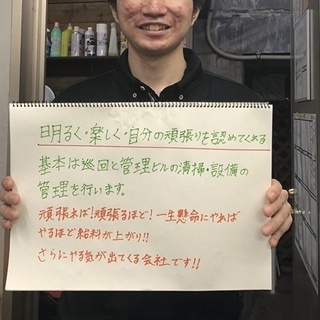 明るく・楽しく・自分の頑張りを認めてくれる
基本は巡回と管理ビルの清掃・設備の
管理を行います。
頑張れば!頑張るほど!一生懸命にやれば
やるほど給料が上がり!!
さらにやる気が出てくる会社です!!